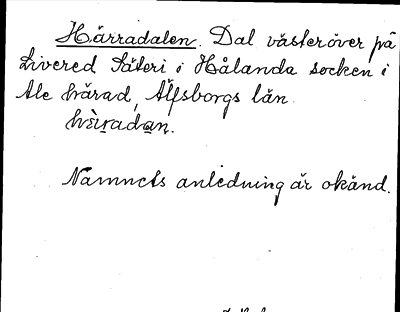 Härradalen. Dal västeröver på
Livered Säteri i Hålanda socken i
Ale härad, Älfsborgs län.
Namnets anledning är okänd.